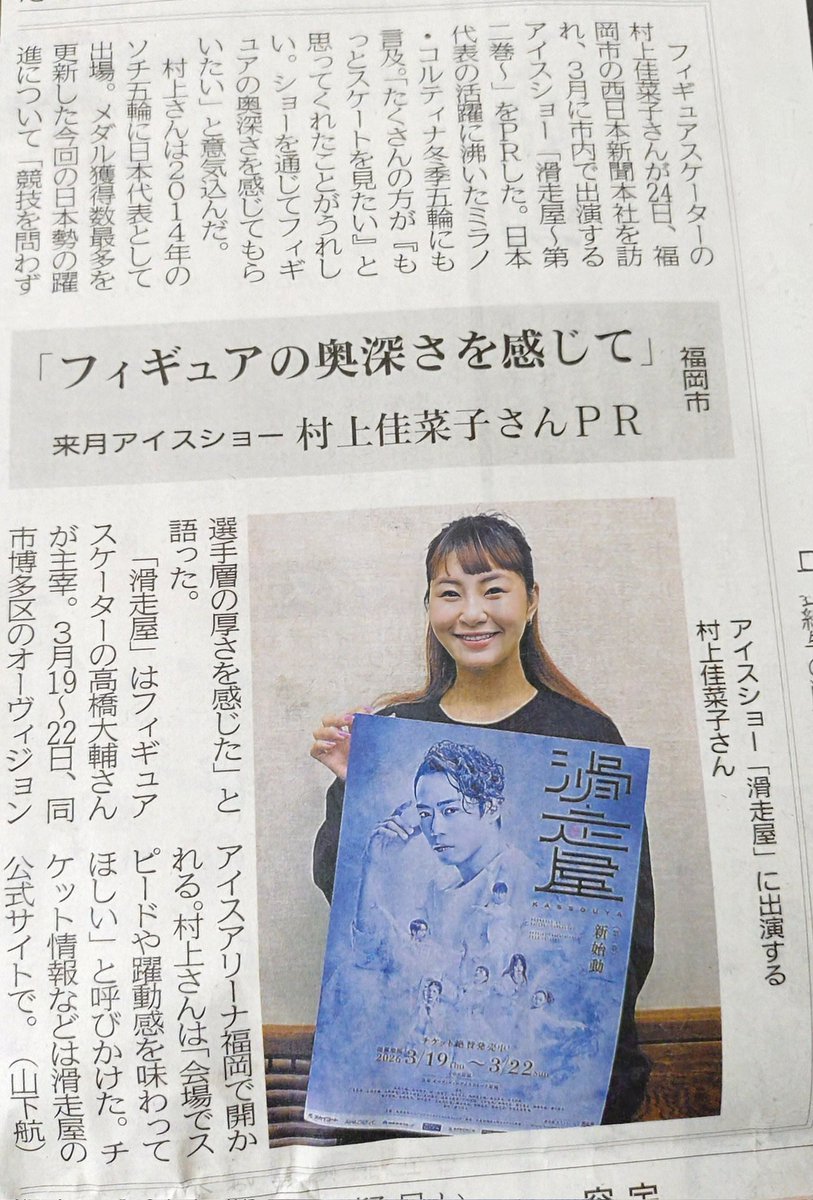 フィギュアスケーターの
村上佳菜子さんが24日、福
岡市の西日本新聞本社を訪
れ、3月に市内で出演する
アイスショー「滑走屋〜第
二巻〜」をPRした。日本
代表の活躍に沸いたミラノ
・コルティナ冬季五輪にも
言及。「たくさんの方が『も
っとスケートを見たい』と
思ってくれたことがうれし
い。ショーを通じてフィギ
ュアの奥深さを感じてもら
いたい」と意気込んだ。
村上さんは2014年の
ソチ五輪に日本代表として
出場。メダル獲得数最多を
更新した今回の日本勢の躍
進について「競技を問わず
福岡市
「フィギュアの奥深さを感じて」
来月アイスショー 村上佳菜子さんPR
選手層の厚さを感じた」と
語った。
「滑走屋」はフィギュア
スケーターの高橋大輔さん
が主宰。3月19〜22日、同
市博多区のオーヴィジョン
アイスアリーナ福岡で開か
れる。村上さんは「会場でス
ピードや躍動感を味わって
ほしい」と呼びかけた。チ
ケット情報などは滑走屋の
公式サイトで。(山下航)
アイスショー「滑走屋」に出演する
村上佳菜子さん
滑走屋
KASSOUYA
新始動
チケット絶賛発売中!
2026 3/19 Thu 〜 3/22 Sun